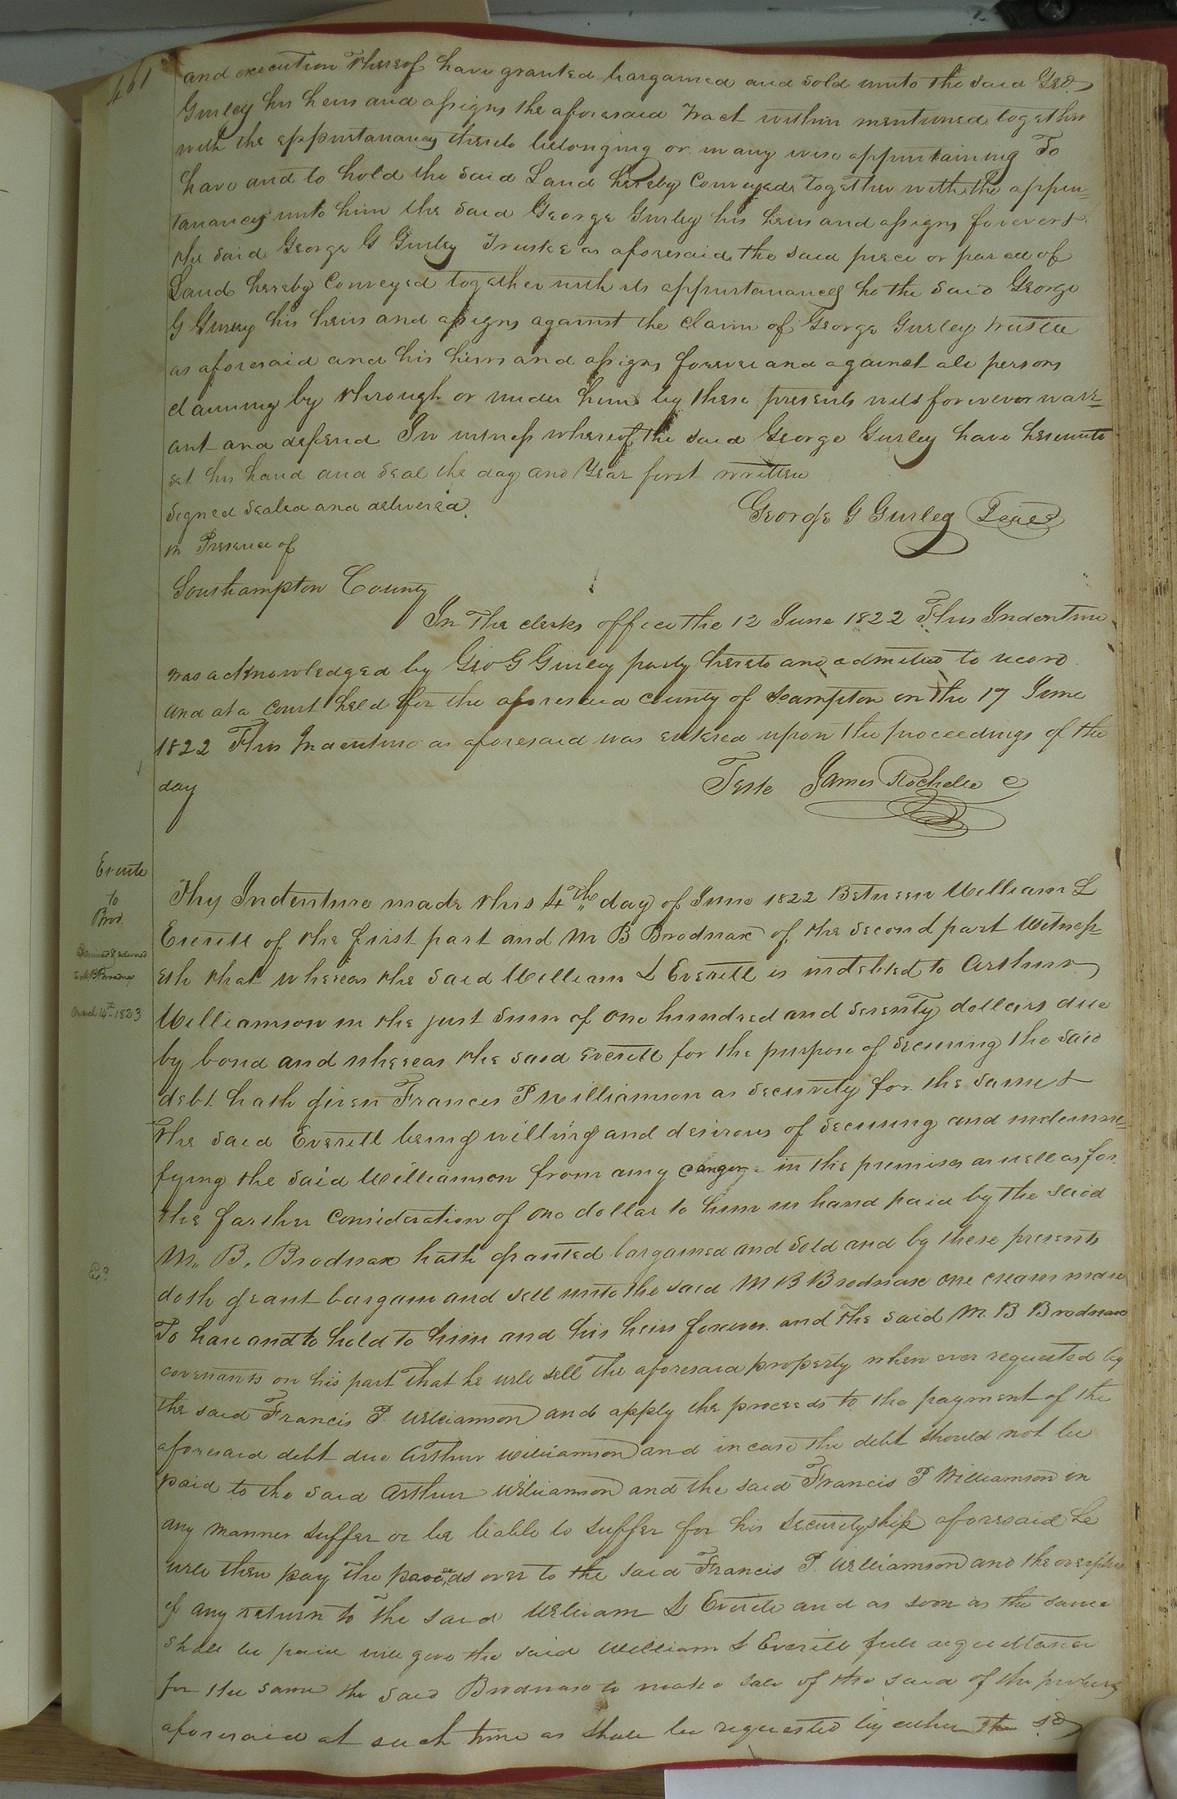 461
and execution thereof have granted bargained and sold unto the said Geo.
Gurley his heirs and assigns the aforesaid tract within mentioned together
with the appurtanances thereto belonging or in any wise appurtaining To
have and to hold the said Land hereby Conveyed together with the appur-
tanances unto him the said George Gurley his heirs and assigns forever &
the said George G Gurley Trustee as aforesaid the said piece or parcel of
Land hereby Conveyed together with its appurtanances to the said George
G Gurley his heirs and assigns against the claim of George Gurley trustee
as aforesaid and his heirs and assigns forever and against all persons
claiming by through or under him by these presents will forever warr-
ant and defend In witness whereof the said George Gurley have hereunto
set his hand and seal the day and Year first written
Signed Sealed and delivered
in Presence of
George G Gurley Seal
Southampton County
In The clerks office the 12 June 1822 This Indenture
was acknowledged by Geo G Gurley party hereto and admitted to record
and at a Court held for the aforesaid County of Southampton on the 17 June
1822 This Indenture as aforesaid was entered upon the proceedings of the
day
Teste James Rochelle C
Everitt
to
Brod
March 14th 1833
This Indenture made this 4th day of June 1822 Between William L
Everitt of the first part and M B Brodnax of the second part Witness-
eth that whereas the said William L Everitt is indebted to Arthur
Williamson in the just sum of one hundred and seventy dollars due
by bond and whereas the said Everitt for the purpose of securing the said
debt hath given Frances P Williamson as security for the same &
the said Everitt being willing and desirous of securing and indemni-
fying the said Williamson from any in the premises as well as for
the farther consideration of one dollar to him in hand paid by the said
M. B. Brodnax hath granted bargained and sold and by these presents
doth grant bargain and sell unto the said M B Brodnax one cream mare
To have and to hold to him and his heirs forever and the said M. B Brodnax
covenants on his part that he will sell the aforesaid property when ever requested by
the said Francis P. Williamson and apply the proceeds to the payment of the
aforesaid debt due Arthur Williamson and in case the debt should not be
paid to the said Arthur Williamson and the said Francis P Williamson in
any manner suffer or be liable to suffer for his securityship aforesaid he
will then pay the proceeds over to the said Francis P. Williamson and the overplus
if any return to the said William L Everitt and as soon as the same
shall be paid will give the said William L Everitt full acquittance
for the same the said Brodnax to make sale of the said of the property
aforesaid at such time as shall be requested by either the sd